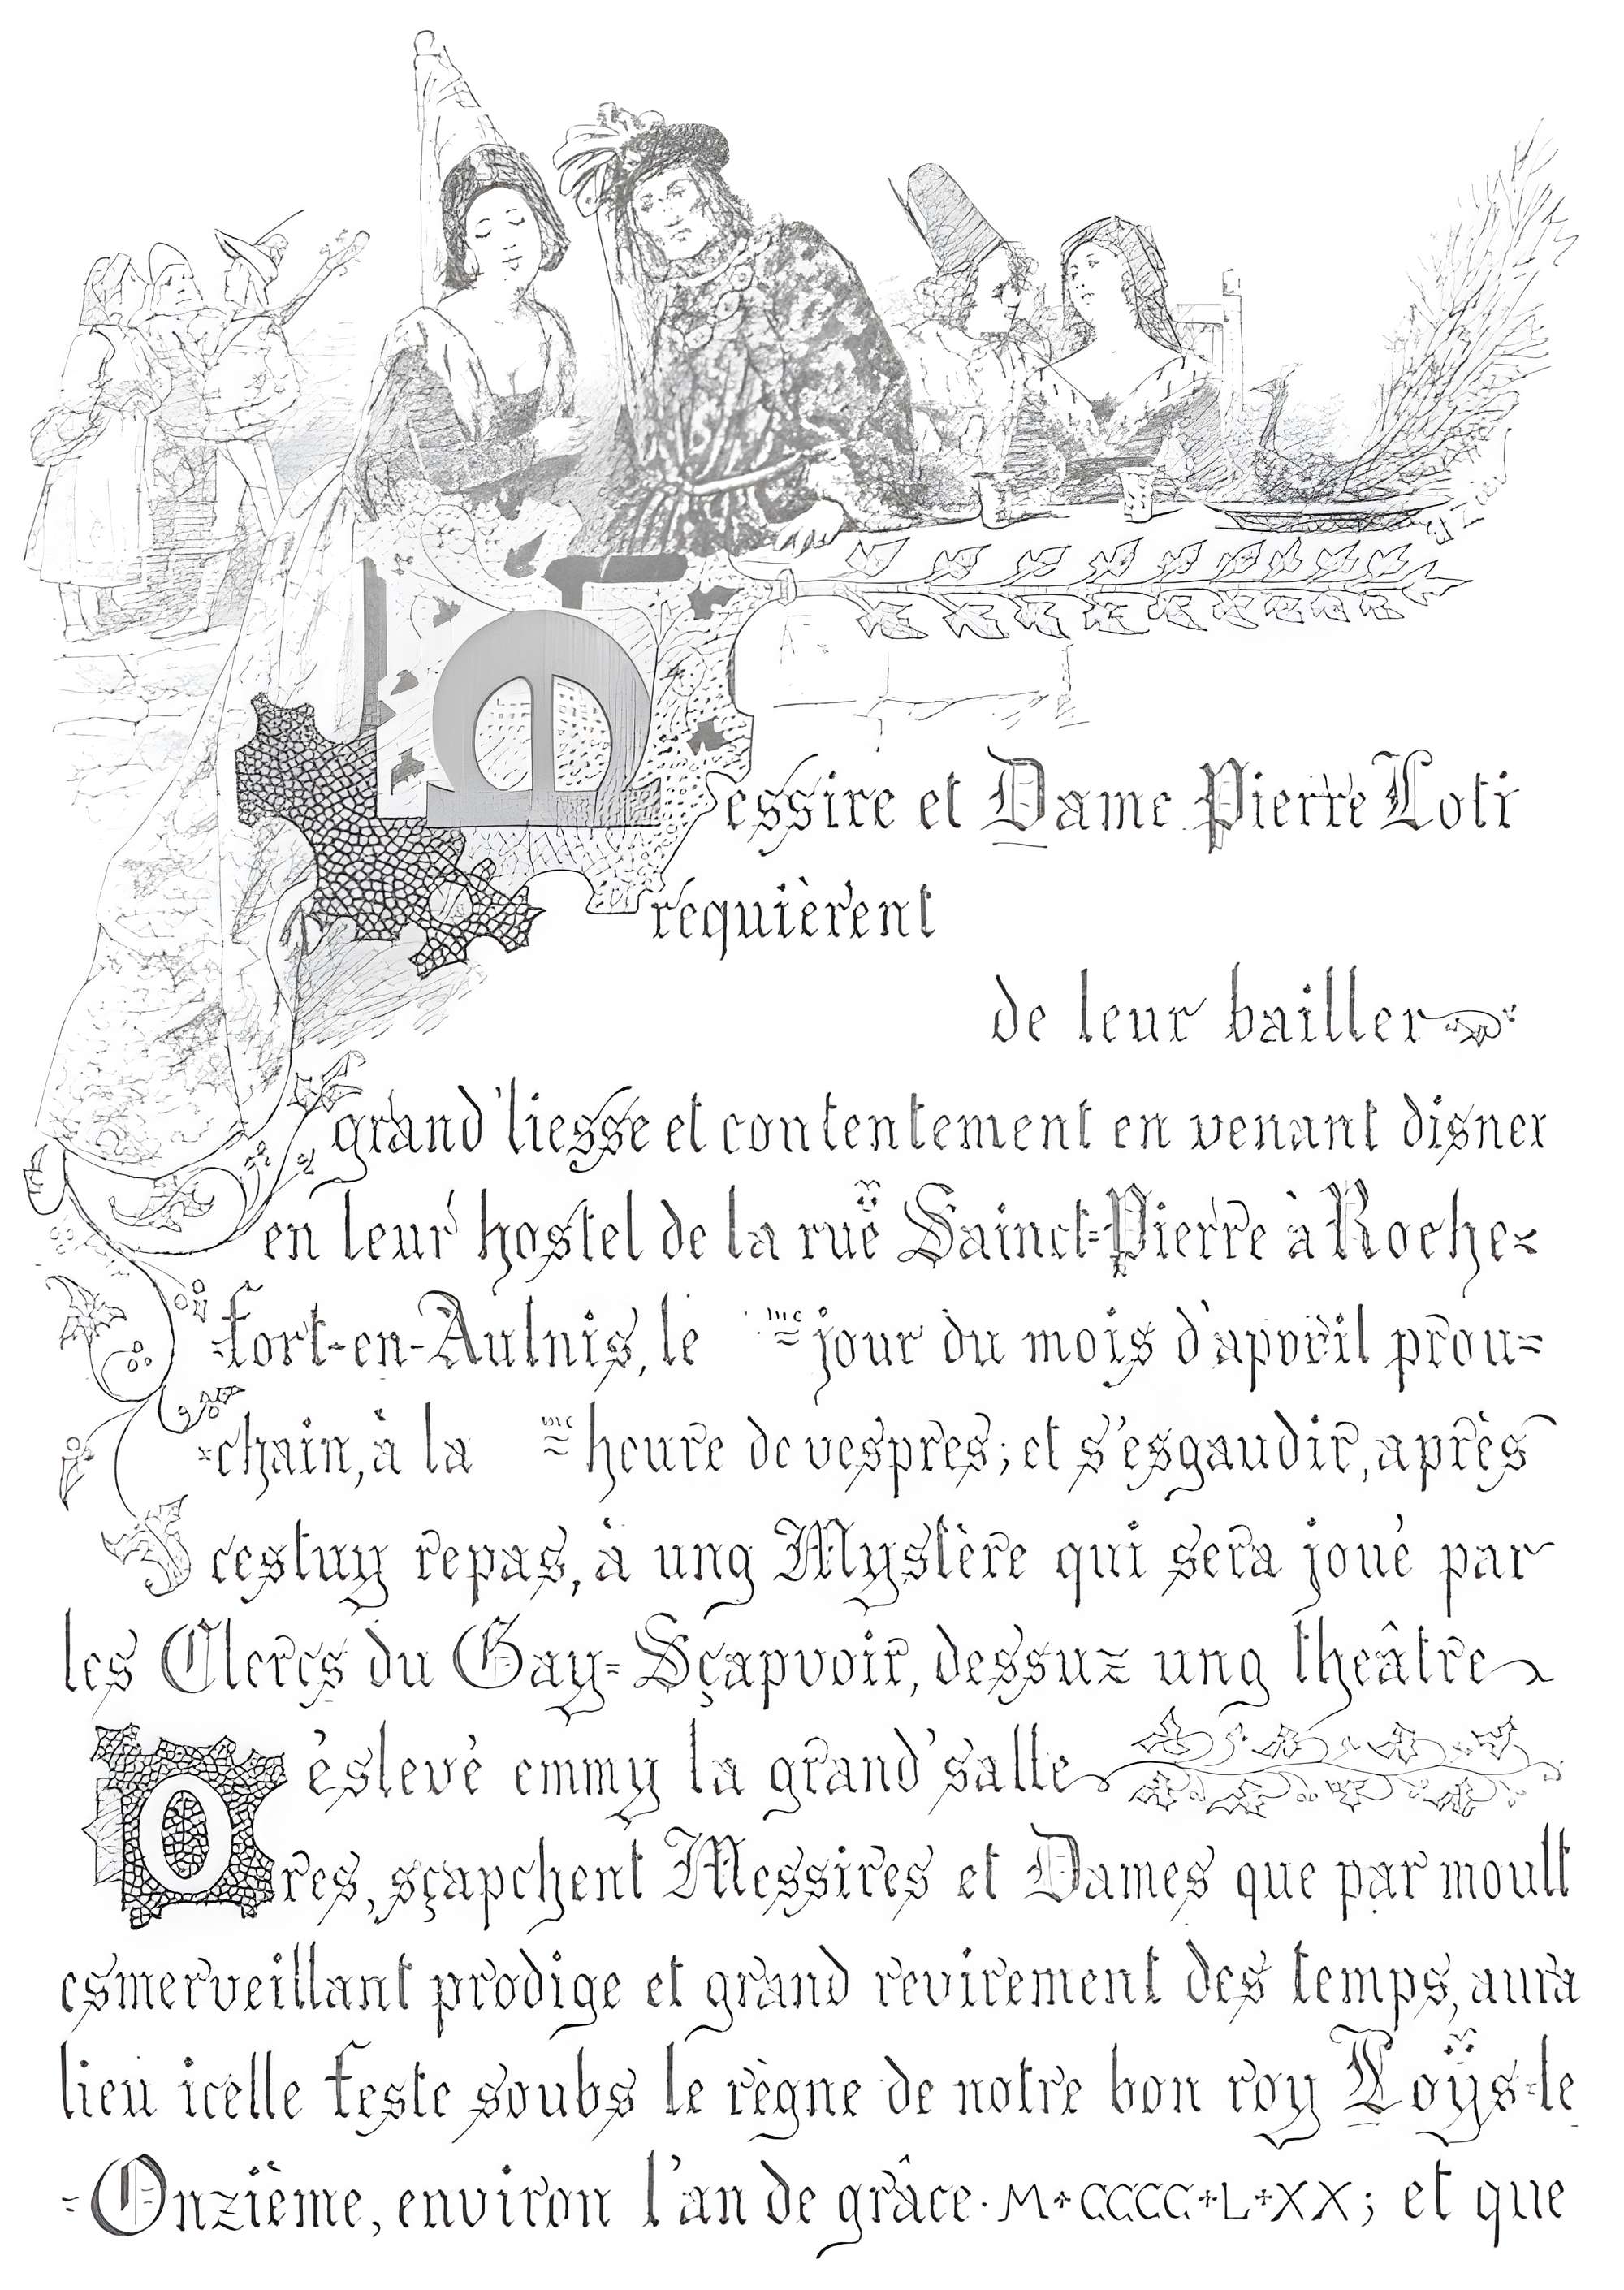 Messire et Dame Pierre Loti
requièrent
de leur bailler
grand'liesse et contentement en venant disner
en leur hostel de la ruë Sainct-Pierre à Roche-
-fort-en-Aulnis, le me jour du mois d'apvril prou-
-chain, à la me heure de vespres; et s'esgaudir, après
Icestuy repas, à ung Mystère qui sera joué par
les Clercs du Gay-Sçapvoir, dessuz ung théâtre
éslevé emmy la grand'salle
Ores, sçapchent Messires et Dames que par moult
esmerveillant prodige et grand revirement des temps, aura
lieu icelle feste soubs le règne de notre bon roy Loÿs-le
-Onzième, environ l'an de grâce. M+CCCC+L+XX; et que